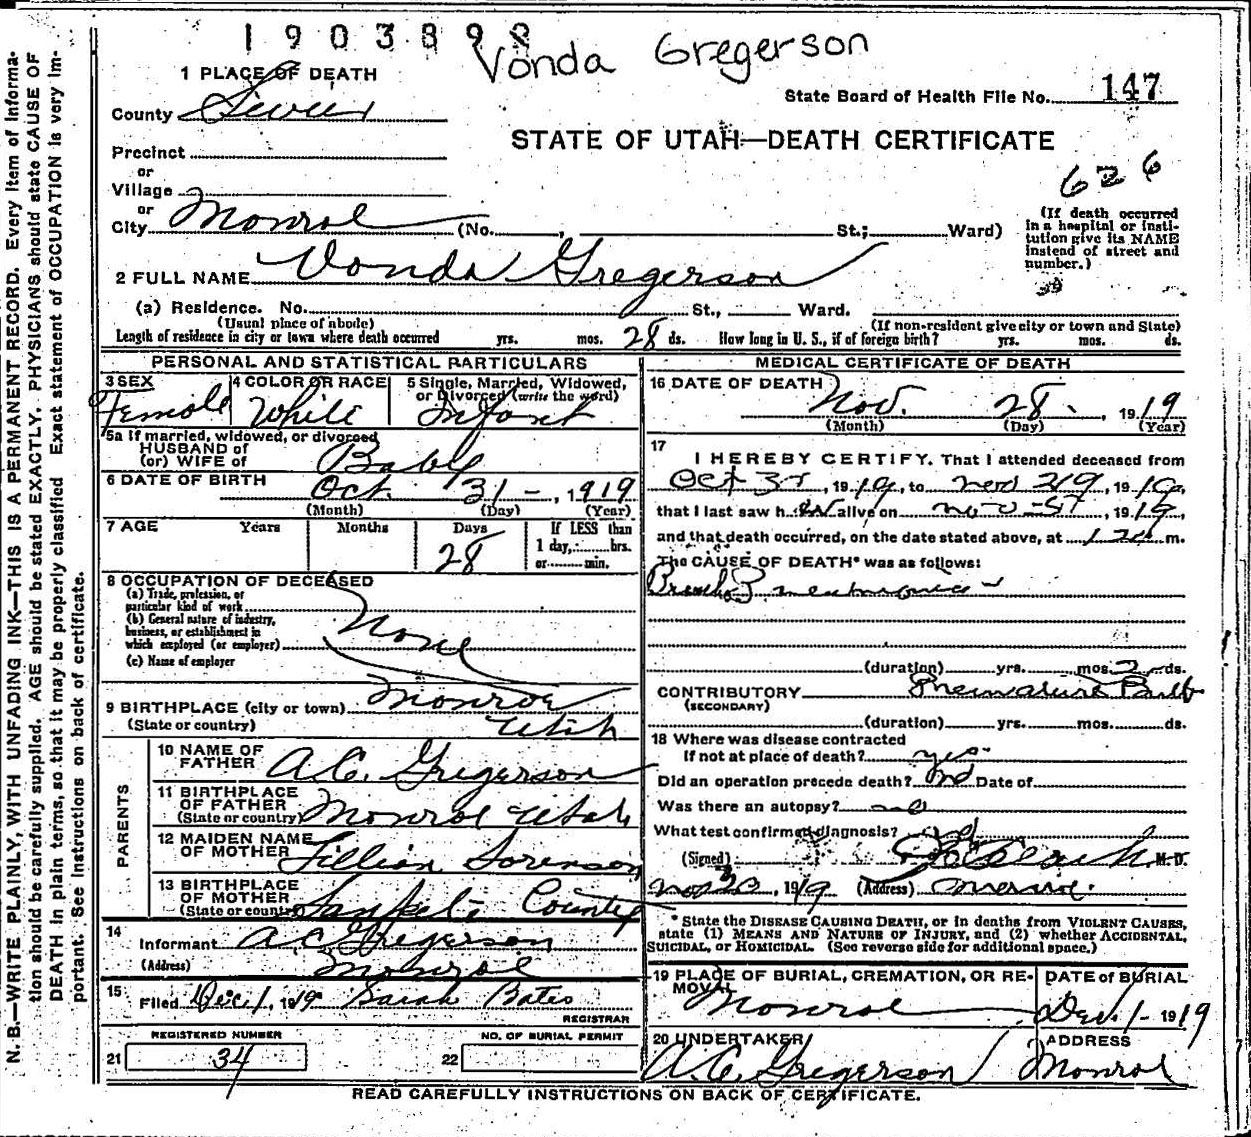 1903892
Vonda Gregerson
1 PLACE OF DEATH
County Sevier
State Board of Health File No. 147
STATE OF UTAH—DEATH CERTIFICATE
Precinct
or
Village
or
City Monroe (No. , St.; Ward)
626
(If death occurred in a hospital or institution give its NAME instead of street and number.)
2 FULL NAME Vonda Gregerson
39
(a) Residence. No. St., Ward.
(Usual place of abode) (If non-resident give city or town and State)
Length of residence in city or town where death occurred yrs. mos. 28 ds. How long in U. S., if of foreign birth? yrs. mos. ds.
PERSONAL AND STATISTICAL PARTICULARS
3 SEX Female
4 COLOR OR RACE White
5 Single, Married, Widowed, or Divorced (write the word) Infant
5a If married, widowed, or divorced
HUSBAND of
(or) WIFE of Baby
6 DATE OF BIRTH Oct. 31 -, 1919
(Month) (Day) (Year)
7 AGE Years Months Days 28 If LESS than 1 day, hrs. or min.
8 OCCUPATION OF DECEASED
(a) Trade, profession, or particular kind of work
(b) General nature of industry, business, or establishment in which employed (or employer) None
(c) Name of employer
9 BIRTHPLACE (city or town) Monroe
(State or country) Utah
PARENTS
10 NAME OF FATHER A.C. Gregerson
11 BIRTHPLACE OF FATHER (State or country) Monroe Utah
12 MAIDEN NAME OF MOTHER Lillian Sorenson
13 BIRTHPLACE OF MOTHER (State or country) Sanpete County
14 Informant A C Gregerson
(Address) Monroe
15 Filed Dec 1, 1919 Sarah Bates
REGISTRAR
REGISTERED NUMBER
21 34
NO. OF BURIAL PERMIT
22
MEDICAL CERTIFICATE OF DEATH
16 DATE OF DEATH Nov. 28, 1919
(Month) (Day) (Year)
17 I HEREBY CERTIFY, That I attended deceased from
Oct 31, 1919, to Nov , 1919,
that I last saw her alive on Nov , 1919,
and that death occurred, on the date stated above, at m.
The CAUSE OF DEATH* was as follows:
Broncho Pneumonia
(duration) yrs. mos. 2 ds.
CONTRIBUTORY Premature Birth
(SECONDARY)
(duration) yrs. mos. ds.
18 Where was disease contracted
If not at place of death? yes.
Did an operation precede death? no Date of
Was there an autopsy? no
What test confirmed diagnosis?
(Signed) M.D.
Nov , 1919 (Address) Monroe.
* State the DISEASE CAUSING DEATH, or in deaths from VIOLENT CAUSES, state (1) MEANS AND NATURE OF INJURY, and (2) whether ACCIDENTAL, SUICIDAL, or HOMICIDAL. (See reverse side for additional space.)
19 PLACE OF BURIAL, CREMATION, OR REMOVAL Monroe
DATE of BURIAL Dec. 1- 1919
20 UNDERTAKER A.C. Gregerson
ADDRESS Monroe
READ CAREFULLY INSTRUCTIONS ON BACK OF CERTIFICATE.
N. B.—WRITE PLAINLY, WITH UNFADING INK—THIS IS A PERMANENT RECORD. Every item of information should be carefully supplied. AGE should be stated EXACTLY. PHYSICIANS should state CAUSE OF DEATH in plain terms, so that it may be properly classified Exact statement of OCCUPATION is very important. See Instructions on back of certificate.